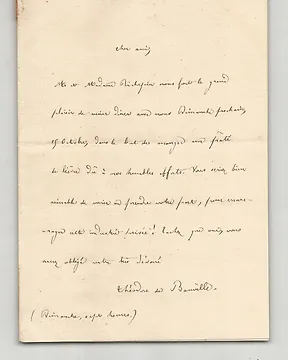 cher ami,
Mr et Madame Richepin nous font le grand
plaisir de venir dîner avec nous Dimanche prochain,
15 Octobre, dans le but de manger un pâté
de lièvre dû à nos humbles efforts. Vous seriez bien
aimable de venir en prendre votre part, pour encou-
-rager cette industrie privée! tachez, que nous vous
ayez obligé votre très dévoué
Théodore de Banville.
(Dimanche, sept heures.)